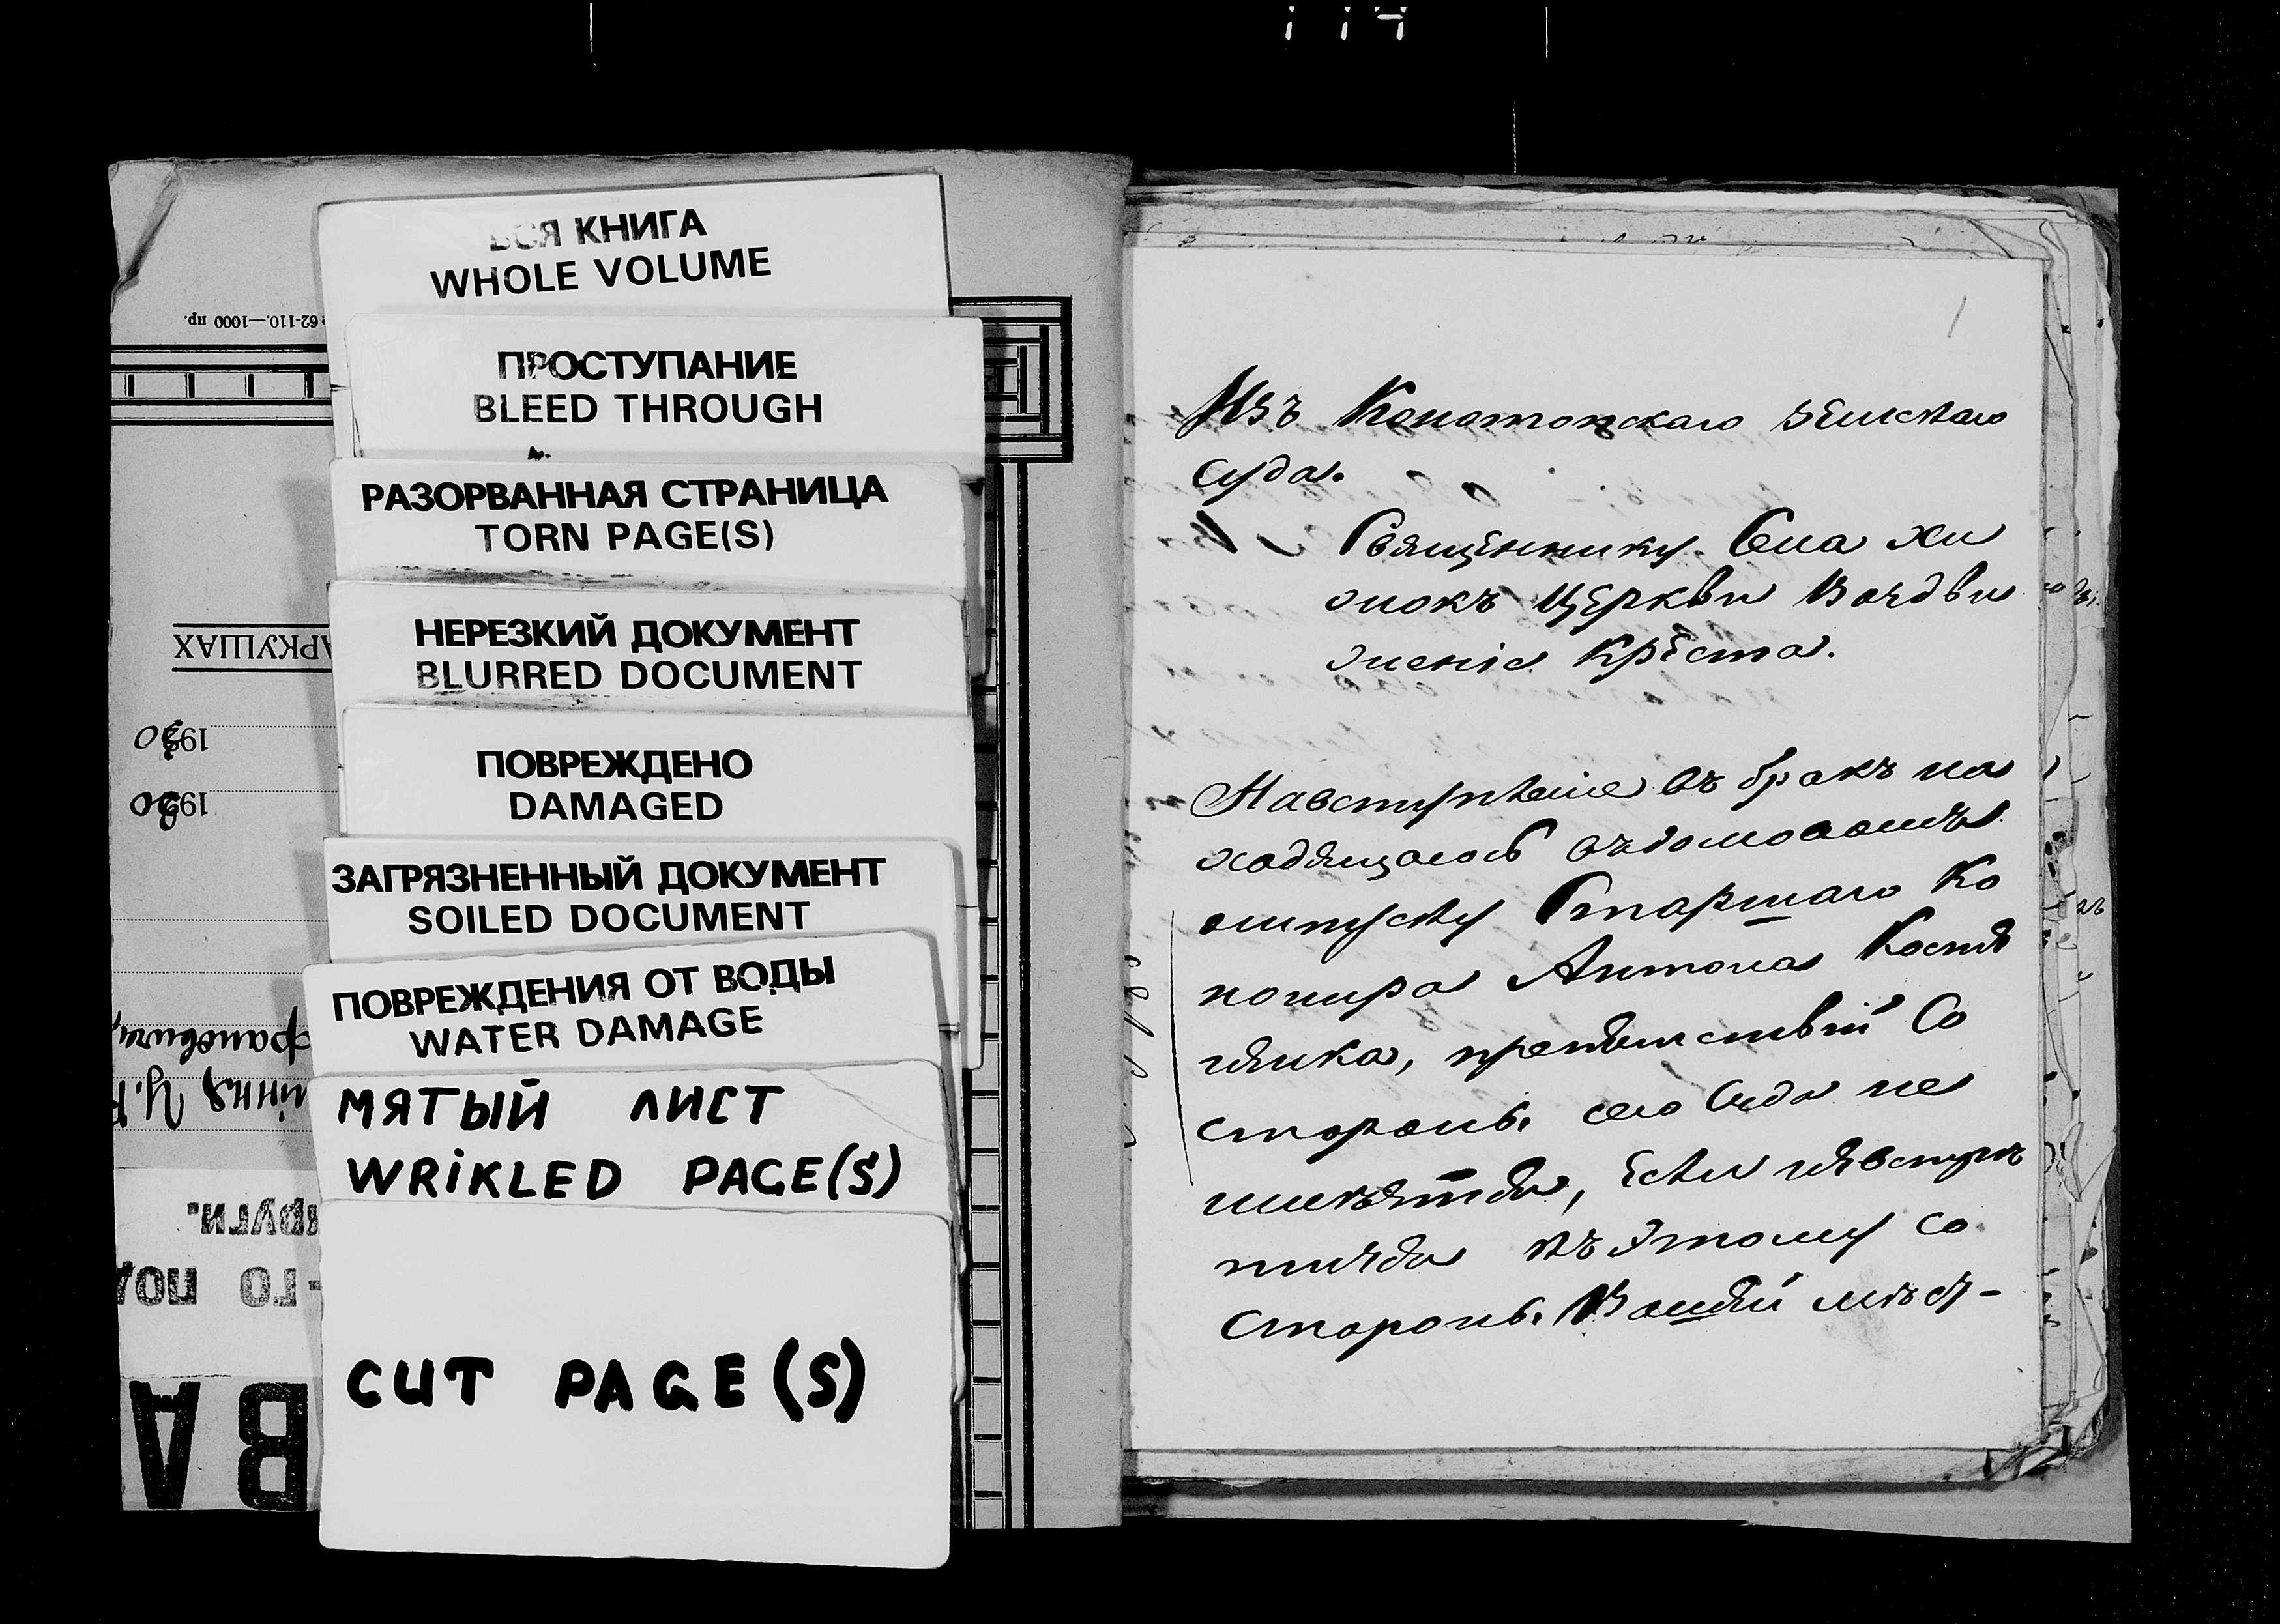 ВСЯ КНИГА
WHOLE VOLUME
ПРОСТУПАНИЕ
BLEED THROUGH
РАЗОРВАННАЯ СТРАНИЦА
TORN PAGE(S)
НЕРЕЗКИЙ ДОКУМЕНТ
BLURRED DOCUMENT
ПОВРЕЖДЕНО
DAMAGED
ЗАГРЯЗНЕННЫЙ ДОКУМЕНТ
SOILED DOCUMENT
ПОВРЕЖДЕНИЯ ОТ ВОДЫ
WATER DAMAGE
МЯТЫЙ ЛИСТ
WRiKLED PAGE(S)
CUT PAGE(S)
62-110.—1000 пр.
АРКУШАХ
1930
1930
-го под
руги.
ВА
1
Изъ Конотопскаго земскаго
суда.
Священнику Села Хи
жокъ церкви Воздви
женія Креста.
Навступленіе въ бракъ на
ходящагося въдомовомъ
отпуску Старшаго Ка
нонира Антона Костя
препятствій Со
стороны сего Суда не
имѣется, если невстрѣ
тится къ этому со
стороны Вашей мѣст-